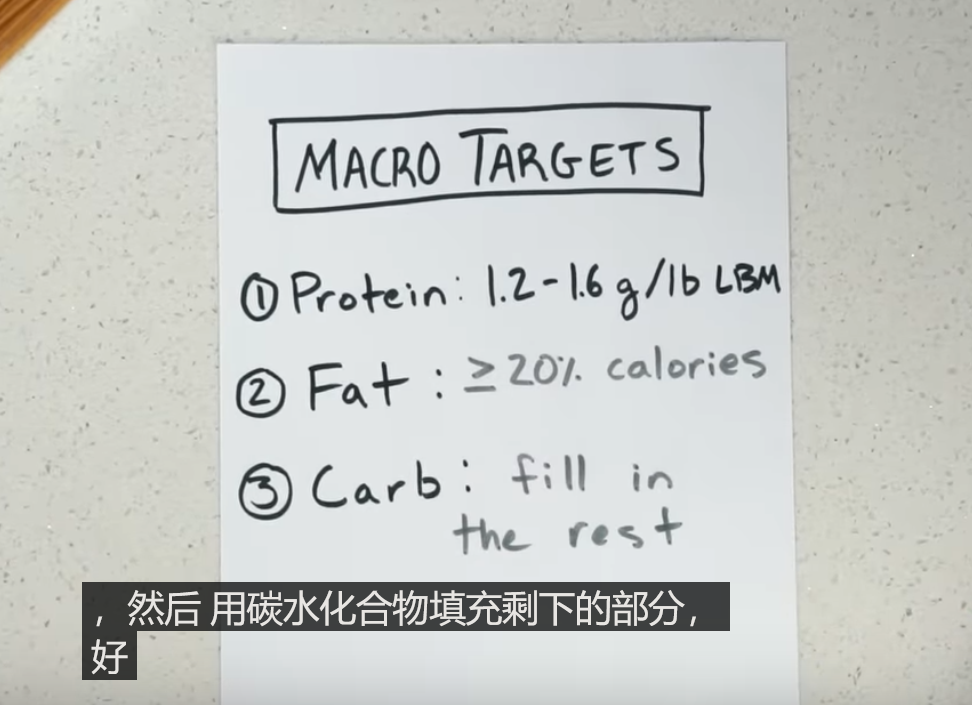 MACRO TARGETS
① Protein: 1.2-1.6 g/lb LBM
② Fat: ≥20% calories
③ Carb: fill in
the rest
，然后 用碳水化合物填充剩下的部分，
好